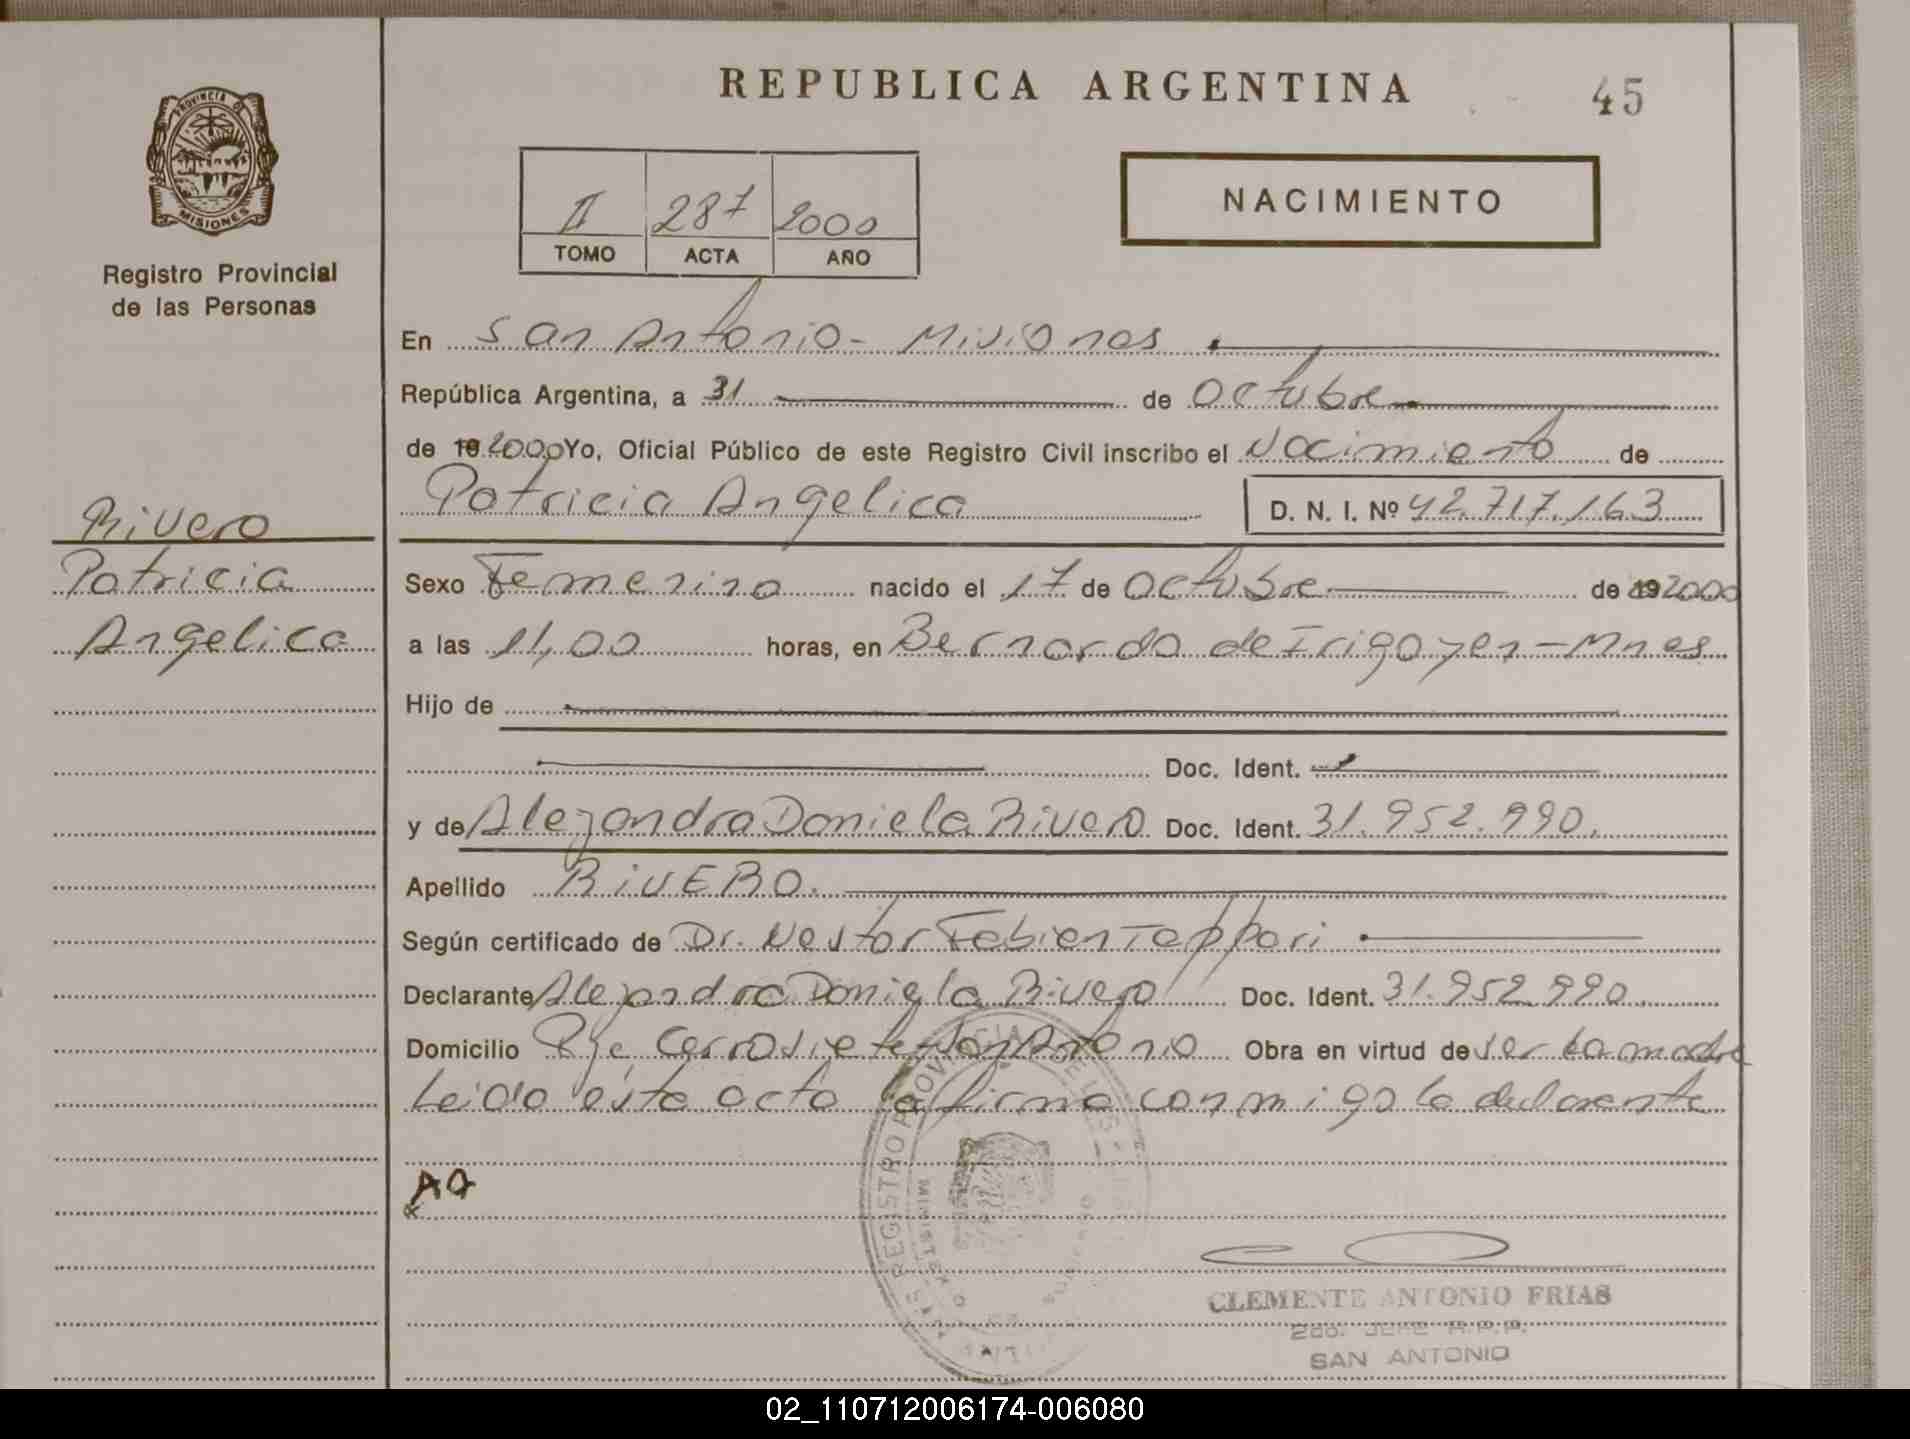 REPUBLICA ARGENTINA
45
PROVINCIA DE
MISIONES
Registro Provincial
de las Personas
II 287 2000
TOMO ACTA AÑO
NACIMIENTO
En San Antonio - Misiones
República Argentina, a 31 de Octubre
de 19 2000 Yo, Oficial Público de este Registro Civil inscribo el Nacimiento de
Patricia Angelica D. N. I. Nº 42.717.163
Rivero
Patricia
Angelica
Sexo Femenino nacido el 17 de Octubre de 19 2000
a las 11,00 horas, en Bernardo de Irigoyen - Mnes
Hijo de
Doc. Ident.
y de Alejandra Daniela Rivero Doc. Ident. 31.952.990.
Apellido RIVERO.
Según certificado de Dr. Nestor Fabien Tappari
Declarante Alejandra Daniela Rivero Doc. Ident. 31.952.990
Domicilio Pje Cerro Siete San Antonio Obra en virtud de ser la madre
Leido esta acta la firma conmigo la declarente
REGISTRO PROVINCIAL DE LAS
CLEMENTE ANTONIO FRIAS
2do. JEFE R.P.P.
SAN ANTONIO
02_110712006174-006080